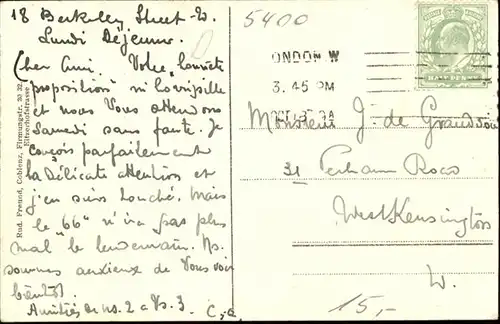 18 Berkeley Street - W.
Lundi Déjeuner.
Cher Ami. Votre "honnête
proposition" ni
et nous Vous attendons
Samedi sans faute. Je
conçois parfaitement
la Délicate attention et
j'en suis touché. Mais
le "66" n'ira pas plus
mal le lendemain. Ns.
sommes anxieux de Vous voir
bientôt.
Amitiés de no. 2 a Vs. 3
Rud. Freund, Coblenz, Firmungstr. 30/32,
5400
LONDON W
3.45 PM
HALF PENNY
Monsieur J. de
31 Perham Road
West Kensington
W.
15,-